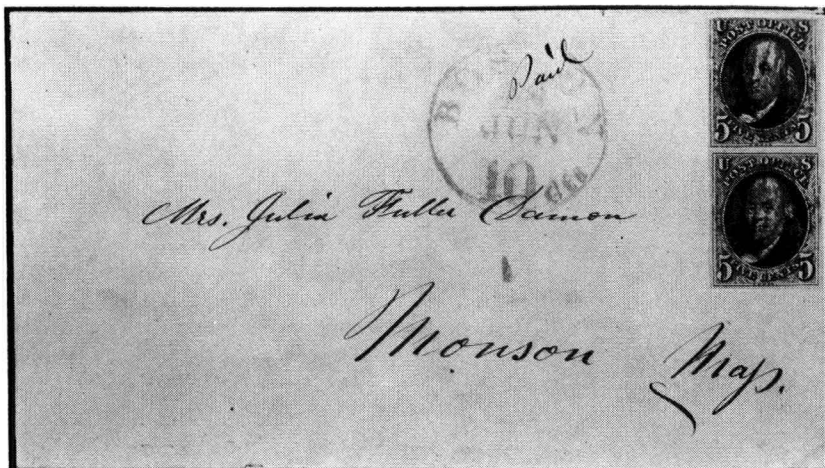 Paid
10
U S
POST OFFICE
5 FIVE CENTS 5
U S
POST OFFICE
5 FIVE CENTS 5
Mrs. Julia Fuller Damon
Monson Mass.